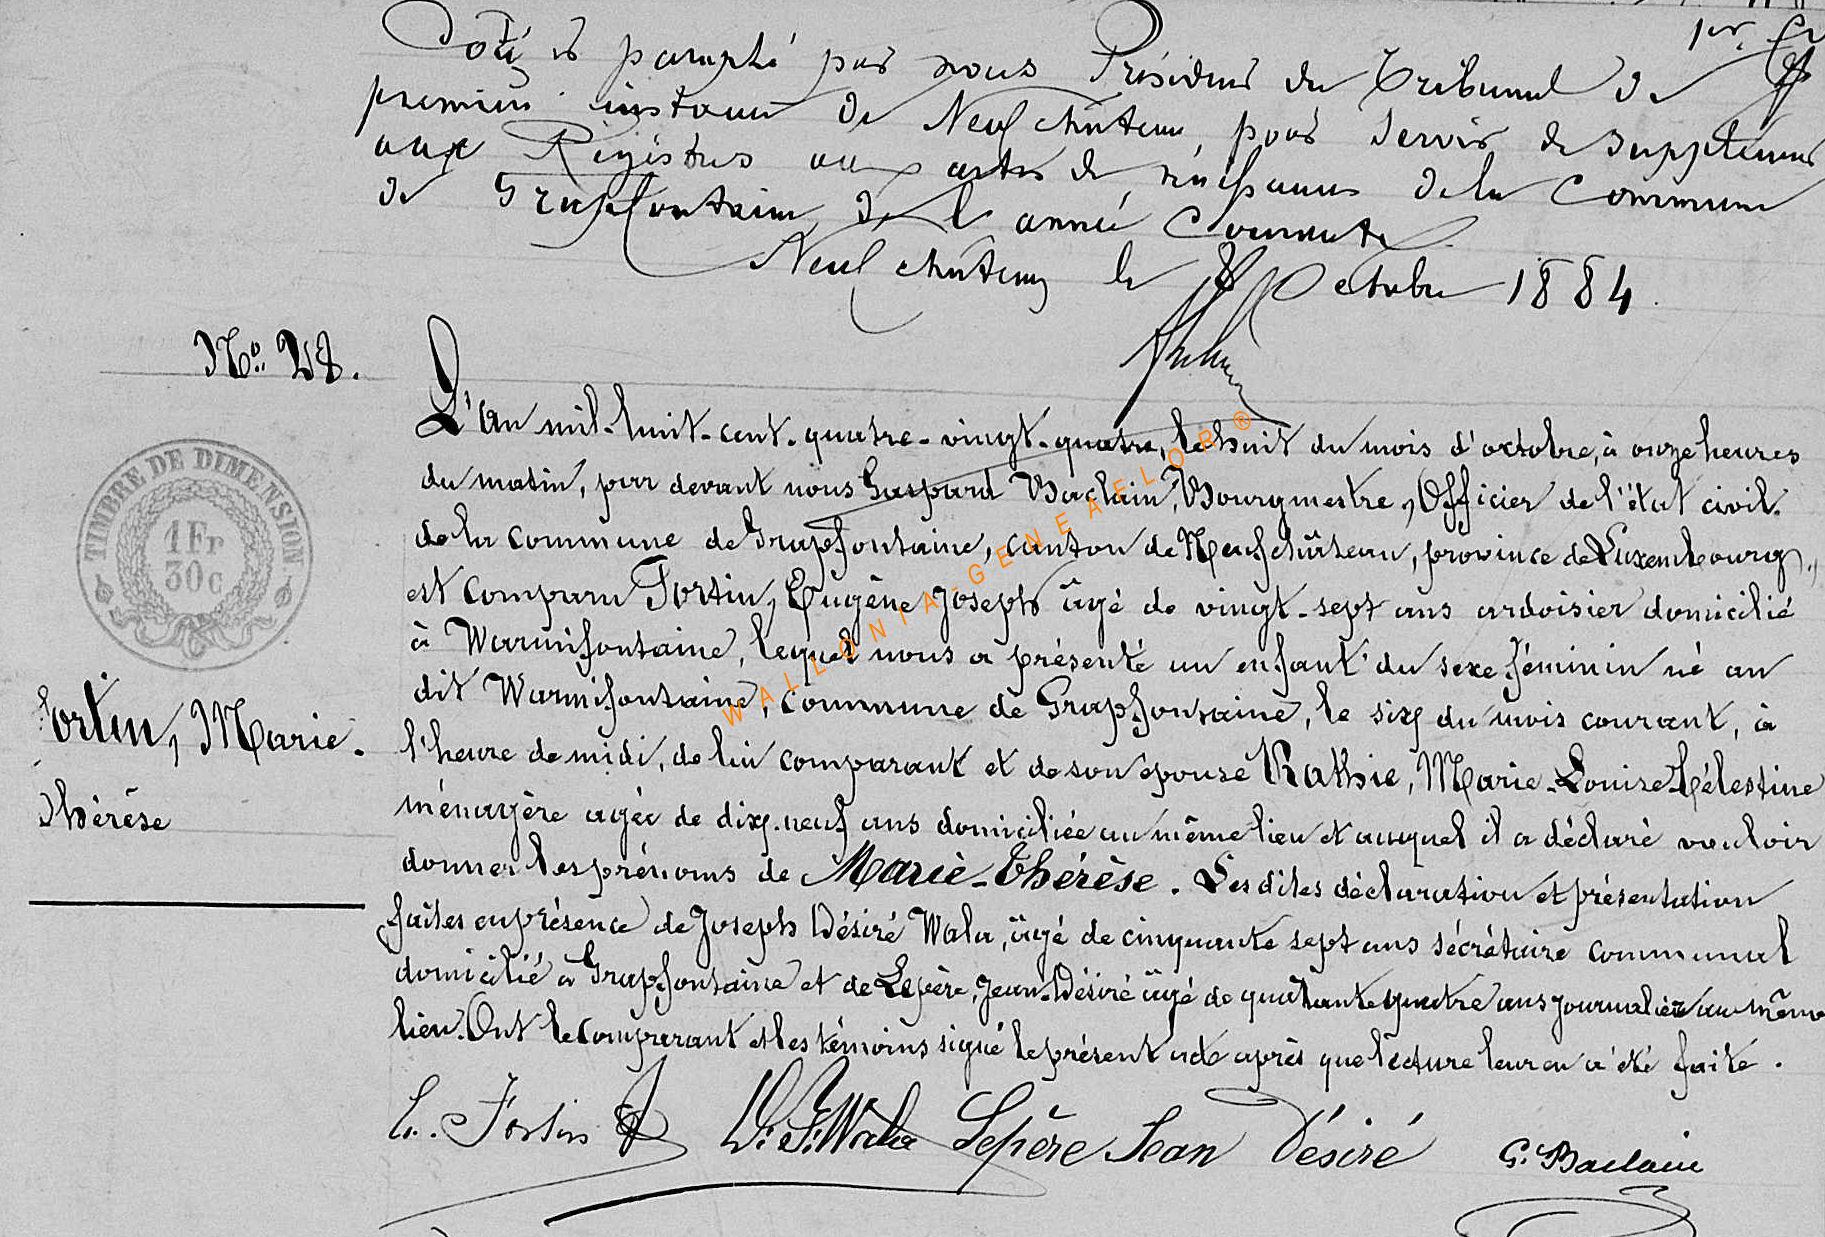 1er
Coté et paraphé par nous Président du Tribunal de
première instance de Neufchâteau, pour servir de supplément
aux Régistres aux actes de naissances de la Commune
de Grapfontaine, de l'année Courante.
Neufchâteau le 8 Octobre 1884.
No. 28.
L'An mil-huit-cent-quatre-vingt-quatre, le huit du mois d'octobre, à onze heures
du matin, par devant nous Gaspard Baclain, Bourgmestre, Officier de l'état civil
de la commune de Grapfontaine, canton de Neufchâteau, province de Luxembourg,
est comparu Fortin, Eugène Joseph âgé de vingt-sept ans ardoisier domicilié
à Warmifontaine, lequel nous a présenté un enfant du sexe féminin né au
dit Warmifontaine, commune de Grapfontaine, le six du mois courant, à
l'heure de midi, de lui comparant et de son épouse Rathie, Marie-Louise-Célestine
ménagère agée de dix-neuf ans domiciliée au même lieu et auquel il a déclaré vouloir
donner les prénoms de Marie-Thérèse. Les dites déclaration et présentation
faites en présence de Joseph Désiré Wala, âgé de cinquante sept ans sécrétaire communal
domicilié à Grapfontaine et de Lepère, Jean-Désiré âgé de quarante quatre ans journalier au même
lieu. Ont le comparant et les témoins signé le présent acte après que lecture leur en a été faite.
TIMBRE DE DIMENSION
1 Fr
30c
Fortin, Marie-
Thérèse
E. Fortin D. J. Wala Lepère Jean Désiré G. Baclain
WALLONIA-GENEAELOR®